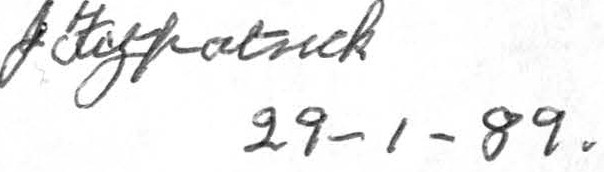 J Fitzpatrick
29-1-89.